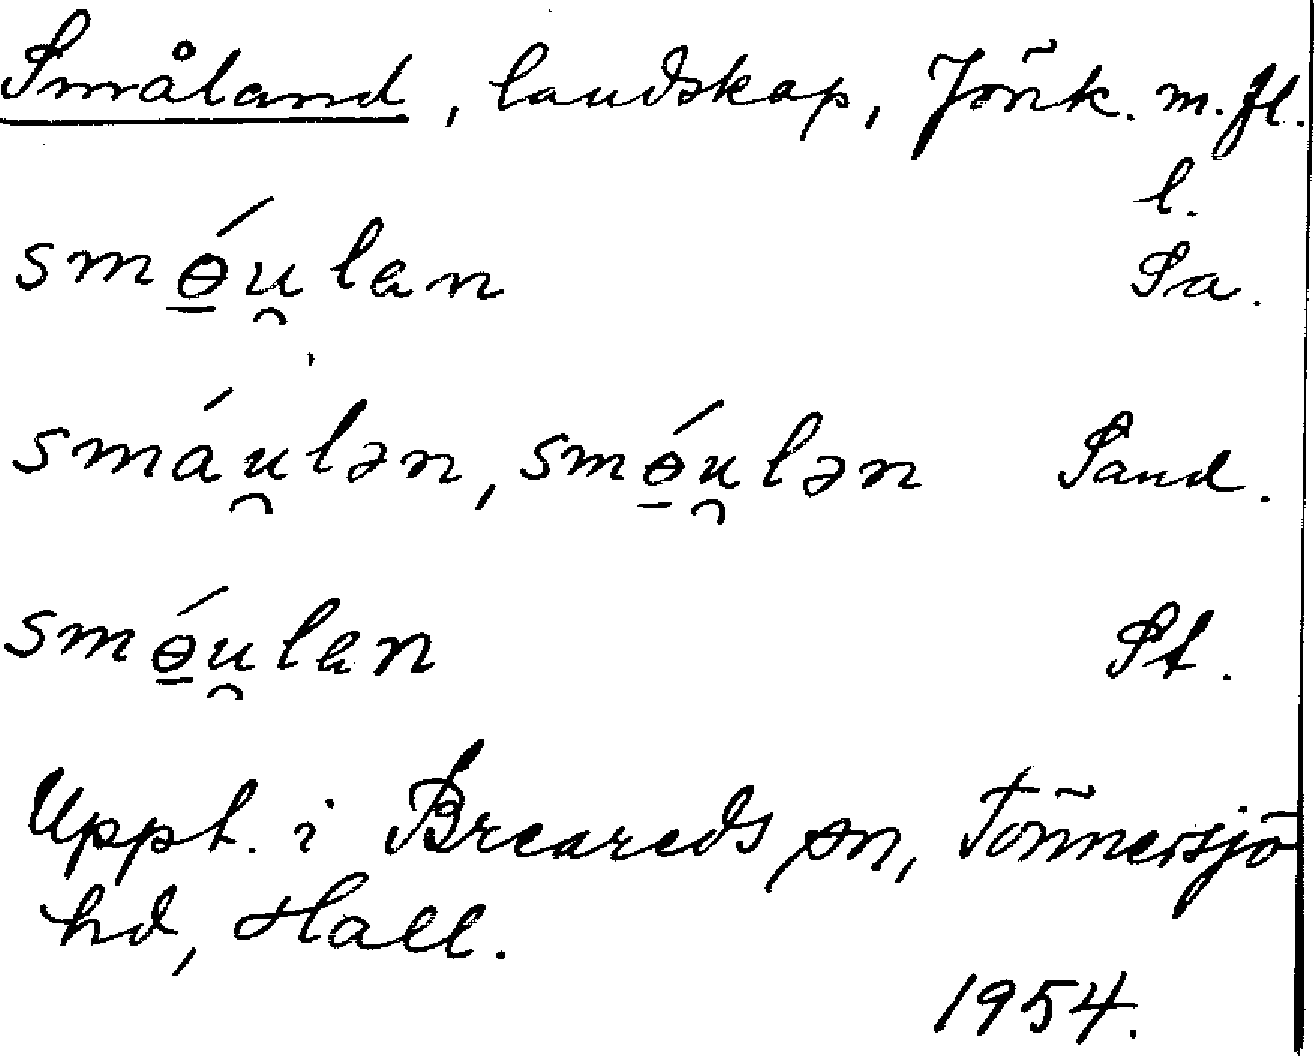 Småland, landskap, Jönk. m. fl.
l.
smɵ̱́u̯lan Sa.
smáu̯lən, smɵ̱́u̯lən Sand.
smɵ̱́u̯lan St.
Uppt. i Breareds sn, Tönnersjö
hd, Hall.
1954.